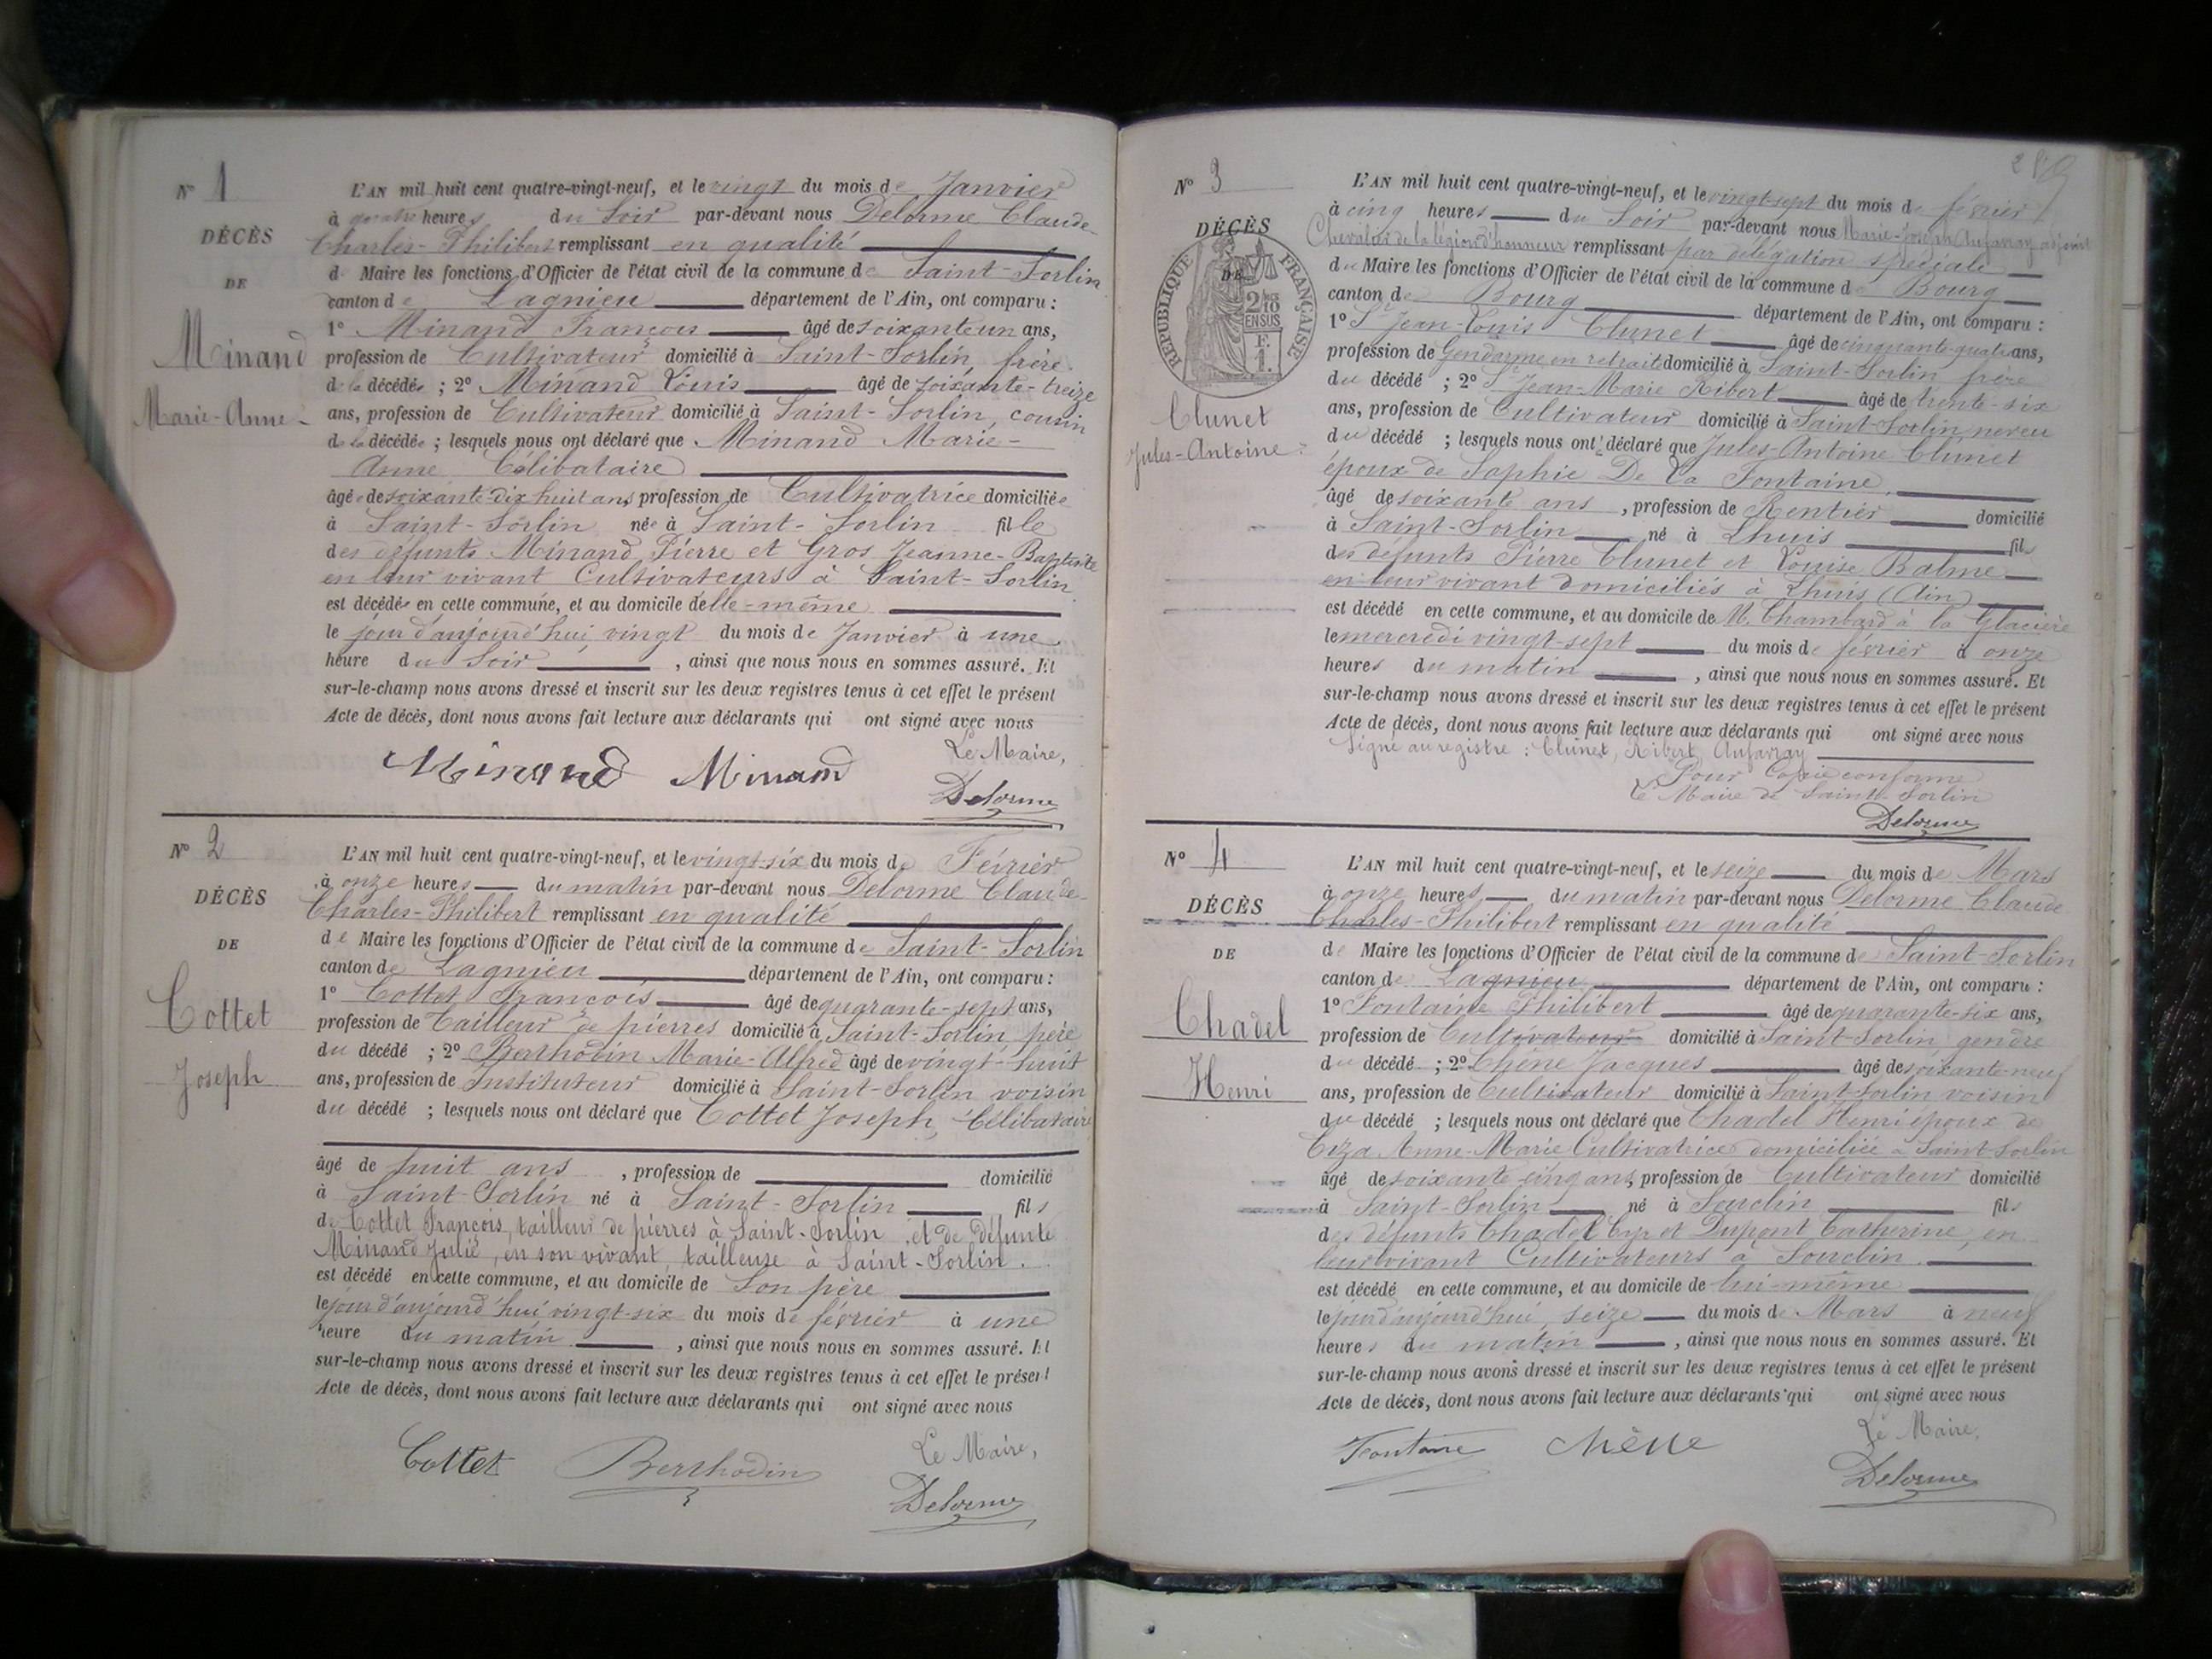 N° 1
DÉCÈS
DE
Minand
Marie-Anne
L'AN mil huit cent quatre-vingt-neuf, et le vingt du mois de Janvier
à quatre heures du Soir par-devant nous Delorme Claude-
Charles-Philibert remplissant en qualité
de Maire les fonctions d'Officier de l'état civil de la commune de Saint-Sorlin
canton de Lagnieu département de l'Ain, ont comparu :
1° Minand François âgé de soixante un ans,
profession de Cultivateur domicilié à Saint-Sorlin, frère
de la décédée ; 2° Minand Louis âgé de soixante-treize
ans, profession de Cultivateur domicilié à Saint-Sorlin, cousin
de la décédée ; lesquels nous ont déclaré que Minand Marie-
Anne Célibataire
âgée de soixante-dix huit ans, profession de Cultivatrice domiciliée
à Saint-Sorlin née à Saint-Sorlin fille
des défunts Minand Pierre et Gros Jeanne-Baptiste
en leur vivant Cultivateurs à Saint-Sorlin
est décédée en cette commune, et au domicile d'elle-même
le jour d'aujourd'hui vingt du mois de Janvier à une
heure du Soir , ainsi que nous nous en sommes assuré. Et
sur-le-champ nous avons dressé et inscrit sur les deux registres tenus à cet effet le présent
Acte de décès, dont nous avons fait lecture aux déclarants qui ont signé avec nous
Le Maire,
Minand Minand
Delorme
N° 2
DÉCÈS
DE
Cottet
Joseph
L'AN mil huit cent quatre-vingt-neuf, et le vingt-six du mois de Février
à onze heures du matin par-devant nous Delorme Claude-
Charles-Philibert remplissant en qualité
de Maire les fonctions d'Officier de l'état civil de la commune de Saint-Sorlin
canton de Lagnieu département de l'Ain, ont comparu :
1° Cottet François âgé de quarante-sept ans,
profession de Tailleur de pierres domicilié à Saint-Sorlin, père
du décédé ; 2° Berthodin Marie-Alfred âgé de vingt-huit
ans, profession de Instituteur domicilié à Saint-Sorlin voisin
du décédé ; lesquels nous ont déclaré que Cottet Joseph, Célibataire
âgé de huit ans , profession de domicilié
à Saint-Sorlin né à Saint-Sorlin fils
de Cottet François, tailleur de pierres à Saint-Sorlin, et de défunte
Minand Julie, en son vivant, tailleuse à Saint-Sorlin.
est décédé en cette commune, et au domicile de Son père
le jour d'aujourd'hui vingt-six du mois de février à une
heure du matin , ainsi que nous nous en sommes assuré. Et
sur-le-champ nous avons dressé et inscrit sur les deux registres tenus à cet effet le présent
Acte de décès, dont nous avons fait lecture aux déclarants qui ont signé avec nous
Le Maire,
Cottet Berthodin
Delorme
N° 3
DÉCÈS
DE
RÉPUBLIQUE FRANÇAISE
2/10 EN SUS
F. 1.
Clunet
Jules-Antoine
L'AN mil huit cent quatre-vingt-neuf, et le vingt-sept du mois de février
à cinq heures du Soir par-devant nous Marie-Joseph Aufavray adjoint
Chevalier de la légion d'honneur remplissant par délégation spéciale
du Maire les fonctions d'Officier de l'état civil de la commune de Bourg
canton de Bourg département de l'Ain, ont comparu :
1° Sr Jean-Louis Clunet âgé de cinquante-quatre ans,
profession de Gendarme en retraite domicilié à Saint-Sorlin frère
du décédé ; 2° Sr Jean-Marie Ribert âgé de trente-six
ans, profession de Cultivateur domicilié à Saint-Sorlin, neveu
du décédé ; lesquels nous ont déclaré que Jules-Antoine Clunet
époux de Sophie De La Fontaine,
âgé de soixante ans , profession de Rentier domicilié
à Saint-Sorlin né à Lhuis fils
des défunts Pierre Clunet et Louise Balme
en leur vivant domiciliés à Lhuis (Ain)
est décédé en cette commune, et au domicile de M. Chambard à la Glacière
le mercredi vingt-sept du mois de février à onze
heures du matin , ainsi que nous nous en sommes assuré. Et
sur-le-champ nous avons dressé et inscrit sur les deux registres tenus à cet effet le présent
Acte de décès, dont nous avons fait lecture aux déclarants qui ont signé avec nous
Signé au registre : Clunet, Ribert, Aufavray
Pour Copie conforme
Le Maire de Saint-Sorlin
Delorme
N° 4
DÉCÈS
DE
Chadel
Henri
L'AN mil huit cent quatre-vingt-neuf, et le seize du mois de Mars
à onze heures du matin par-devant nous Delorme Claude
Charles-Philibert remplissant en qualité
de Maire les fonctions d'Officier de l'état civil de la commune de Saint-Sorlin
canton de Lagnieu département de l'Ain, ont comparu :
1° Fontaine Philibert âgé de quarante-six ans,
profession de Cultivateur domicilié à Saint-Sorlin gendre
du décédé ; 2° Chêne Jacques âgé de soixante-neuf
ans, profession de Cultivateur domicilié à Saint-Sorlin voisin
du décédé ; lesquels nous ont déclaré que Chadel Henri époux de
Anne-Marie Cultivatrice domiciliée à Saint-Sorlin
âgé de soixante cinq ans, profession de Cultivateur domicilié
à Saint-Sorlin né à Souclin fils
des défunts Chadel Cyr et Dupont Catherine, en
leur vivant Cultivateurs à Souclin.
est décédé en cette commune, et au domicile de lui-même
le jour d'aujourd'hui, seize du mois de Mars à neuf
heures du matin , ainsi que nous nous en sommes assuré. Et
sur-le-champ nous avons dressé et inscrit sur les deux registres tenus à cet effet le présent
Acte de décès, dont nous avons fait lecture aux déclarants qui ont signé avec nous
Le Maire,
Fontaine Chêne
Delorme